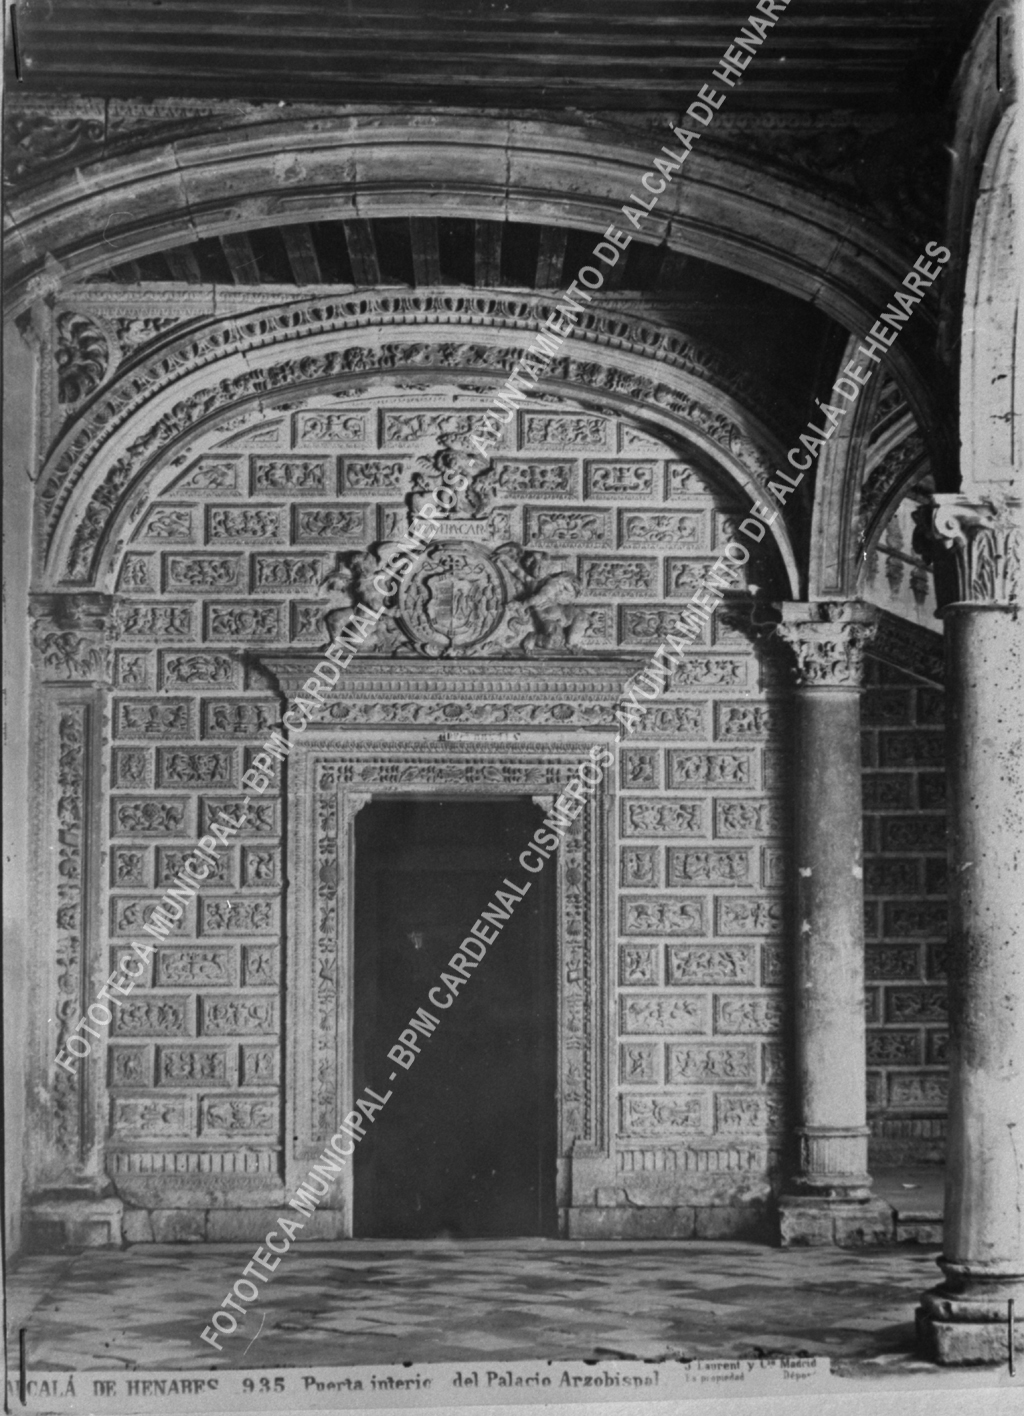 FOTOTECA MUNICIPAL - BPM CARDENAL CISNEROS - AYUNTAMIENTO DE ALCALÁ DE HENARES
FOTOTECA MUNICIPAL - BPM CARDENAL CISNEROS - AYUNTAMIENTO DE ALCALÁ DE HENARES
ALCALÁ DE HENARES 935 Puerta interio del Palacio Arzobispal
J Laurent y Cia Madrid
Es propiedad